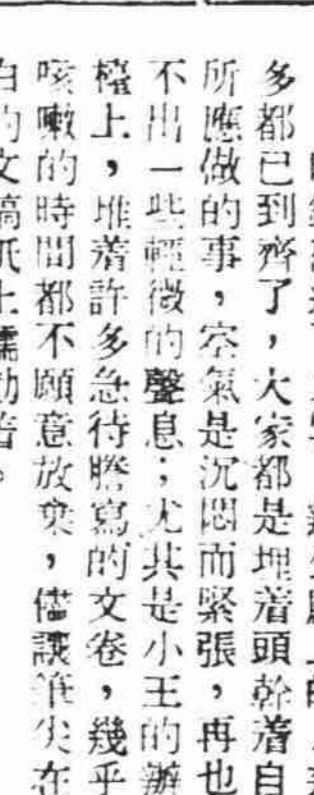 多都已到齊了，大家都是埋着頭幹着自
所應做的事，空氣是沉悶而緊張，再也
不出一些輕微的聲息；尤其是小王的辦
檯上，堆着許多急待謄寫的文卷，幾乎
咳嗽的時間都不願意放棄，儘讓筆尖在
白的文稿紙上蠕動着。